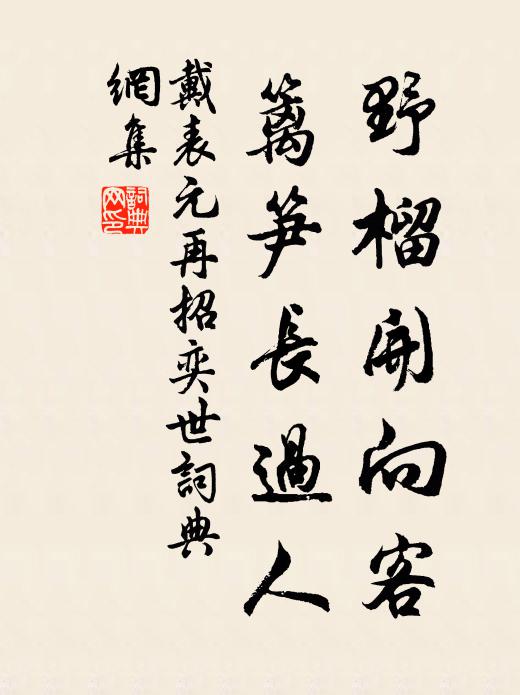 野榴開向客
籬笋長過人
戴表元再招奕世詞典
網集
詞典
网印